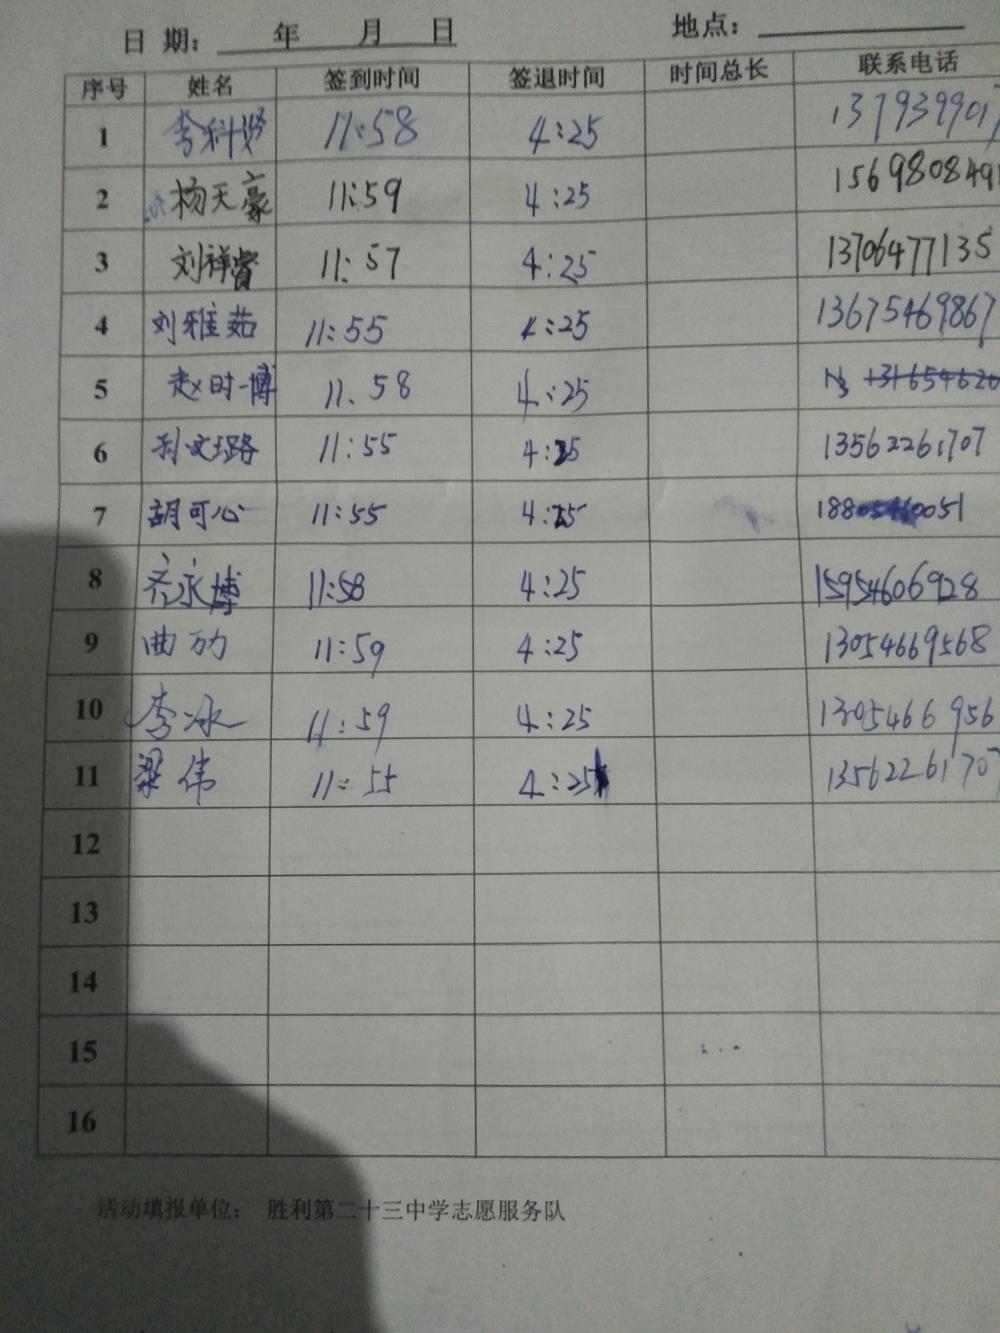 日 期： 年 月 日 地点：
序号 姓名 签到时间 签退时间 时间总长 联系电话
1 李科 11:58 4:25 1379399017
2 杨天豪 11:59 4:25 1569808491
3 刘祥 11:57 4:25 13706477135
4 刘雅茹 11:55 4:25 13675469867
5 赵时博 11.58 4:25
6 孙文璐 11:55 4:25 13562261707
7 胡可心 11:55 4:25 188 0051
8 齐永博 11:58 4:25 15954606928
9 曲 11:59 4:25 13054669568
10 李冰 11:59 4:25 1305466956
11 梁伟 11:55 4:25 13562261707
12
13
14
15
16
活动填报单位： 胜利第二十三中学志愿服务队